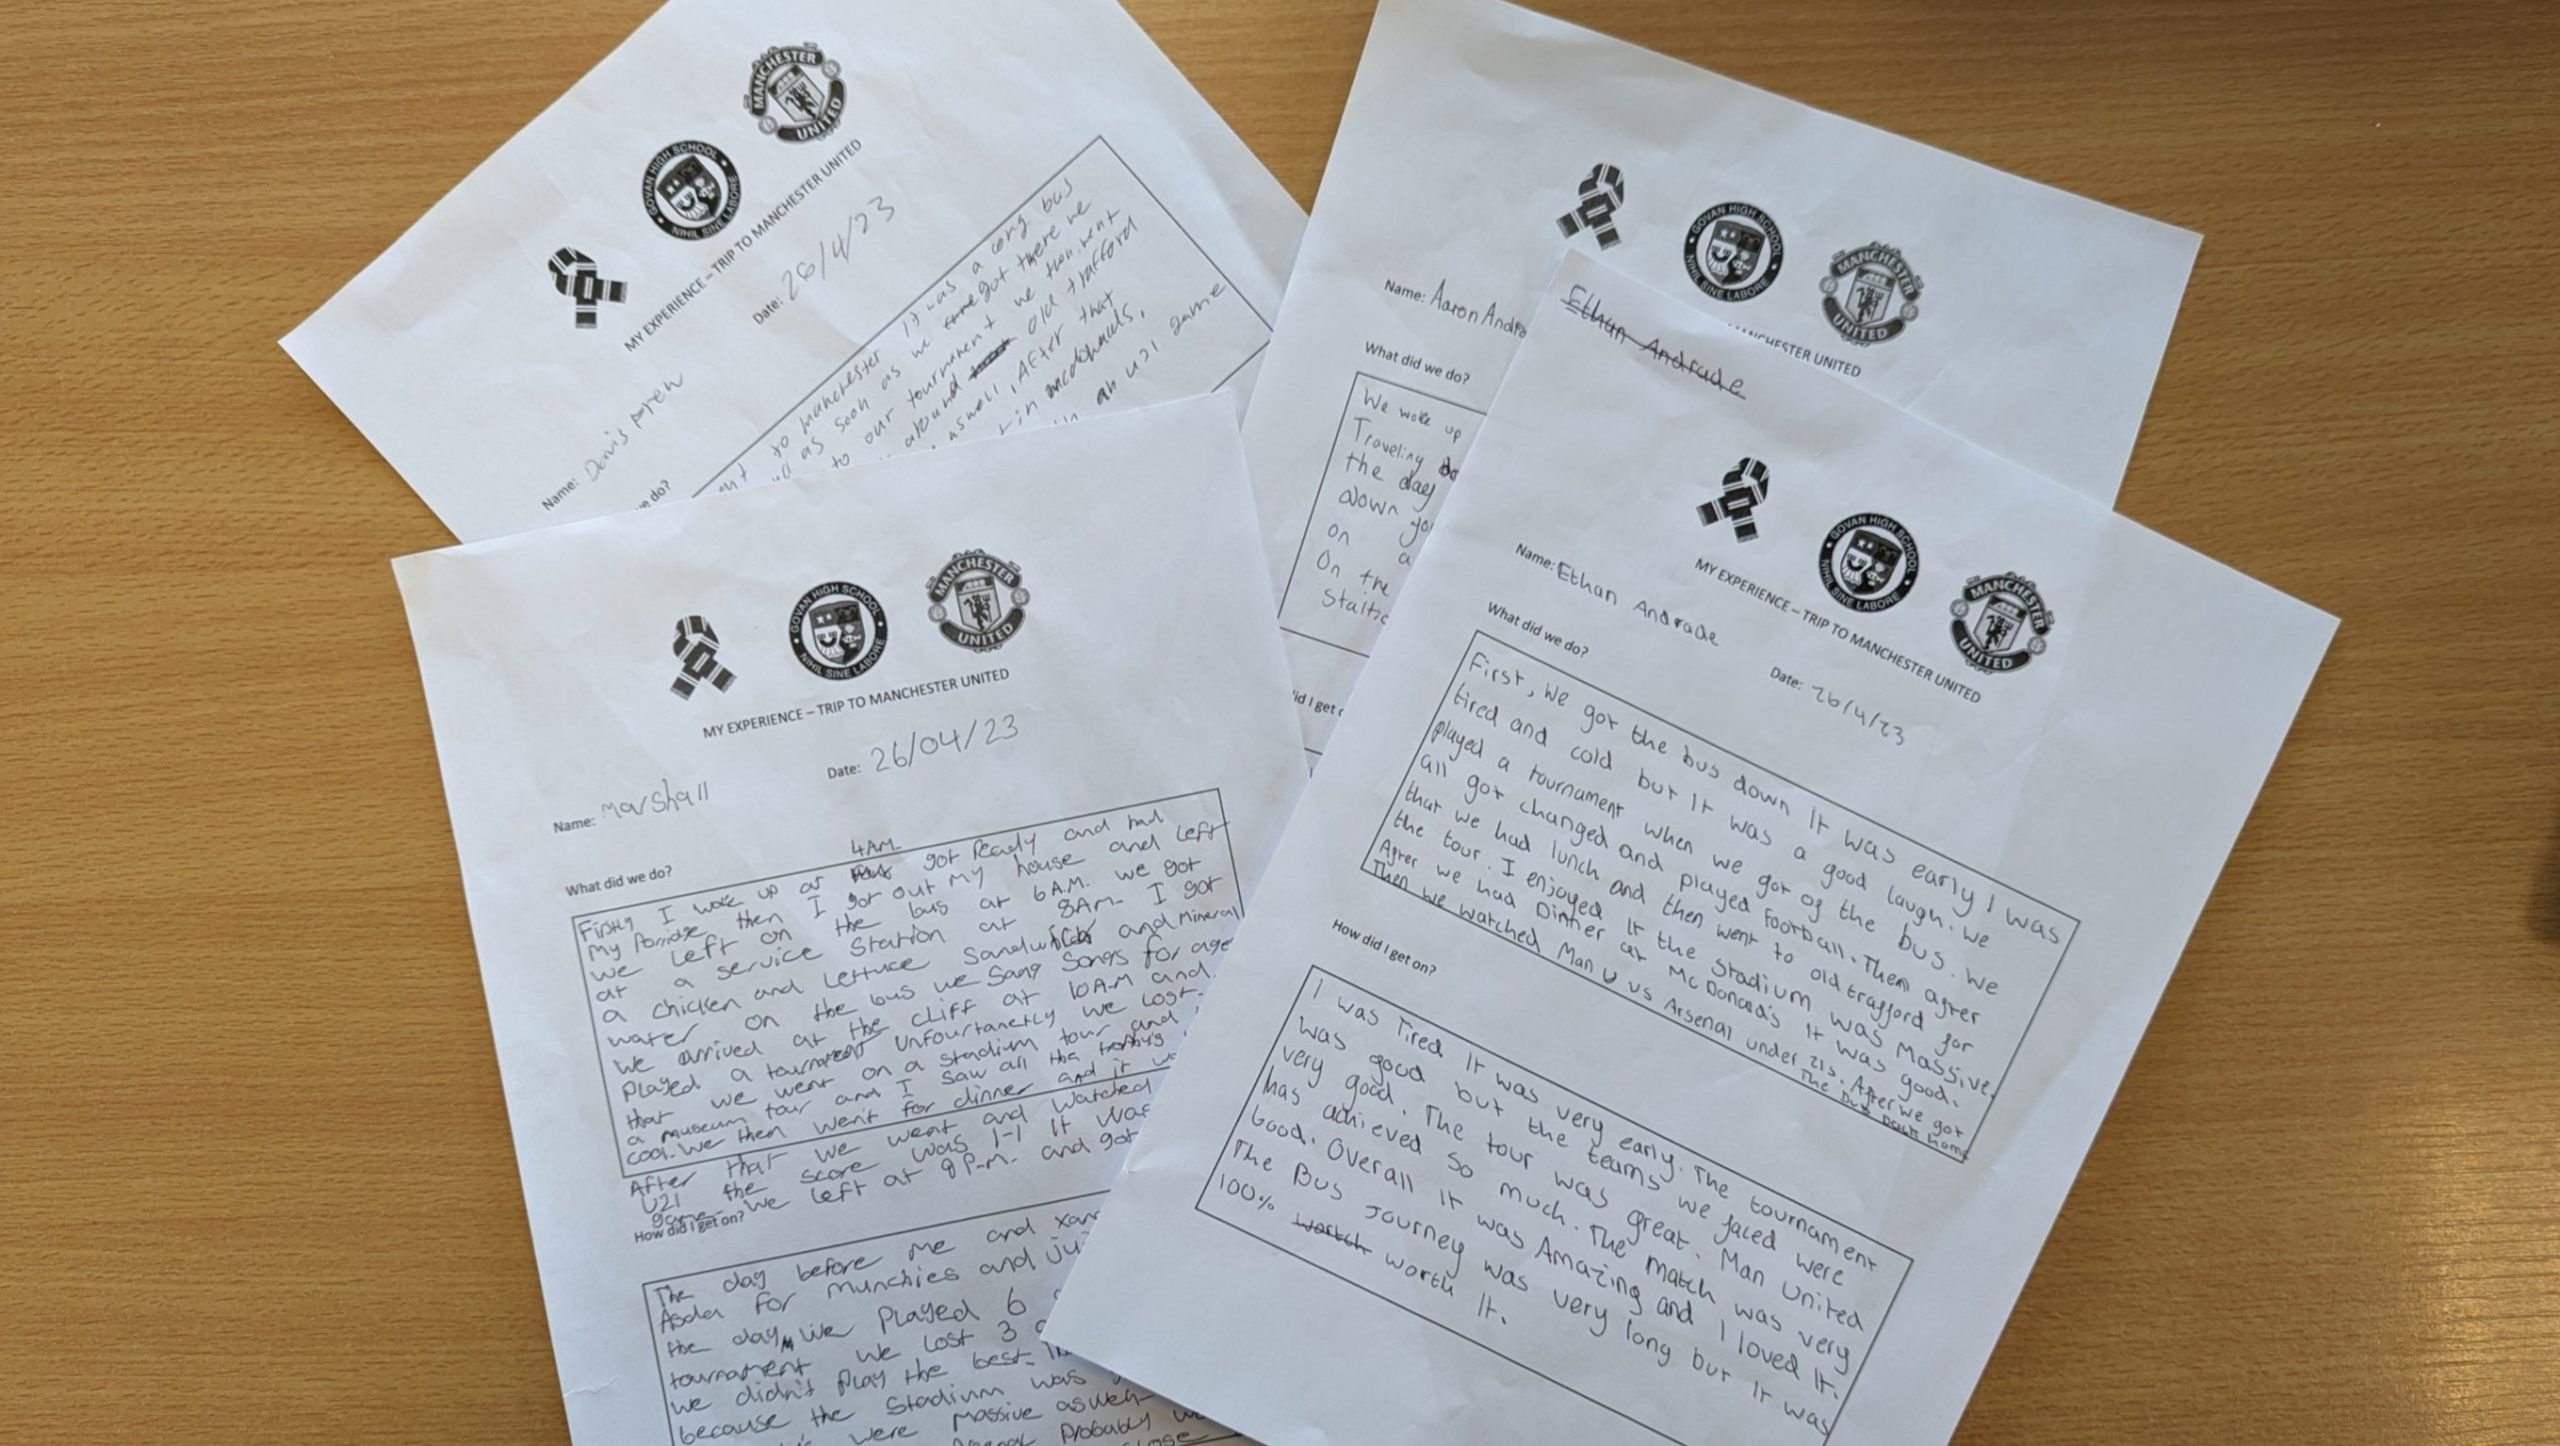 MANCHESTER
UNITED
GOVAN HIGH SCHOOL
NIHIL SINE LABORE
MY EXPERIENCE – TRIP TO MANCHESTER UNITED
Date: 26/4/23
Name: Denis
do?
to manchester it was a long bus
as soon as we got there we
to our tournament we then went
around old trafford
aswell, After that
in mcdonalds,
an u21 game
GOVAN HIGH SCHOOL
NIHIL SINE LABORE
MANCHESTER
UNITED
MANCHESTER UNITED
Name: Aaron Andra
What did we do?
We woke up
Traveling
the day
down
on a
On the
did I get
Ethan Andrade
GOVAN HIGH SCHOOL
NIHIL SINE LABORE
MANCHESTER
UNITED
MY EXPERIENCE – TRIP TO MANCHESTER UNITED
Name: Marshall
Date: 26/04/23
What did we do?
4AM
Firstly I woke up at got ready and had
my Porridge then I got out my house and left
we left on the bus at 6 A.M. we got
at a service Station at 8AM- I got
a chicken and lettuce Sandwich and Mineral
water on the bus we Sang Songs for age
We arrived at the Cliff at 10A.M and
Played a tournament Unfourtanetly we lost.
that we went on a stadium tour and
a museum tour and I saw all the trophy's
cool. We then went for dinner and it
After that we went and watched
U21 the score was 1-1 It was
game. We left at 9 P.M. and got
How did I get on?
The day before me and
Asda for munchies and
the day, We Played 6
tournament we lost 3
we didn't Play the best.
because the Stadium was
were massive aswell
Probably
GOVAN HIGH SCHOOL
NIHIL SINE LABORE
MANCHESTER
UNITED
MY EXPERIENCE – TRIP TO MANCHESTER UNITED
Name: Ethan Andrade
Date: 26/4/23
What did we do?
First, We got the bus down It was early I was
tired and cold but It was a good laugh. We
played a tournament when we got of the bus. We
all got changed and played football. Then after
that we had lunch and then went to old trafford for
the tour. I enjoyed It the Stadium was Massive.
After we had Dinner at McDonald's It was good.
Then we watched Man U vs Arsenal under 21s. After we got
The Bus Back home
How did I get on?
I was Tired It was very early. The tournament
was good but the teams we faced were
very good. The tour was great. Man United
has achieved so much. The match was very
Good. Overall It was Amazing and I loved It.
The Bus Journey was very long but It was
100% worth It.